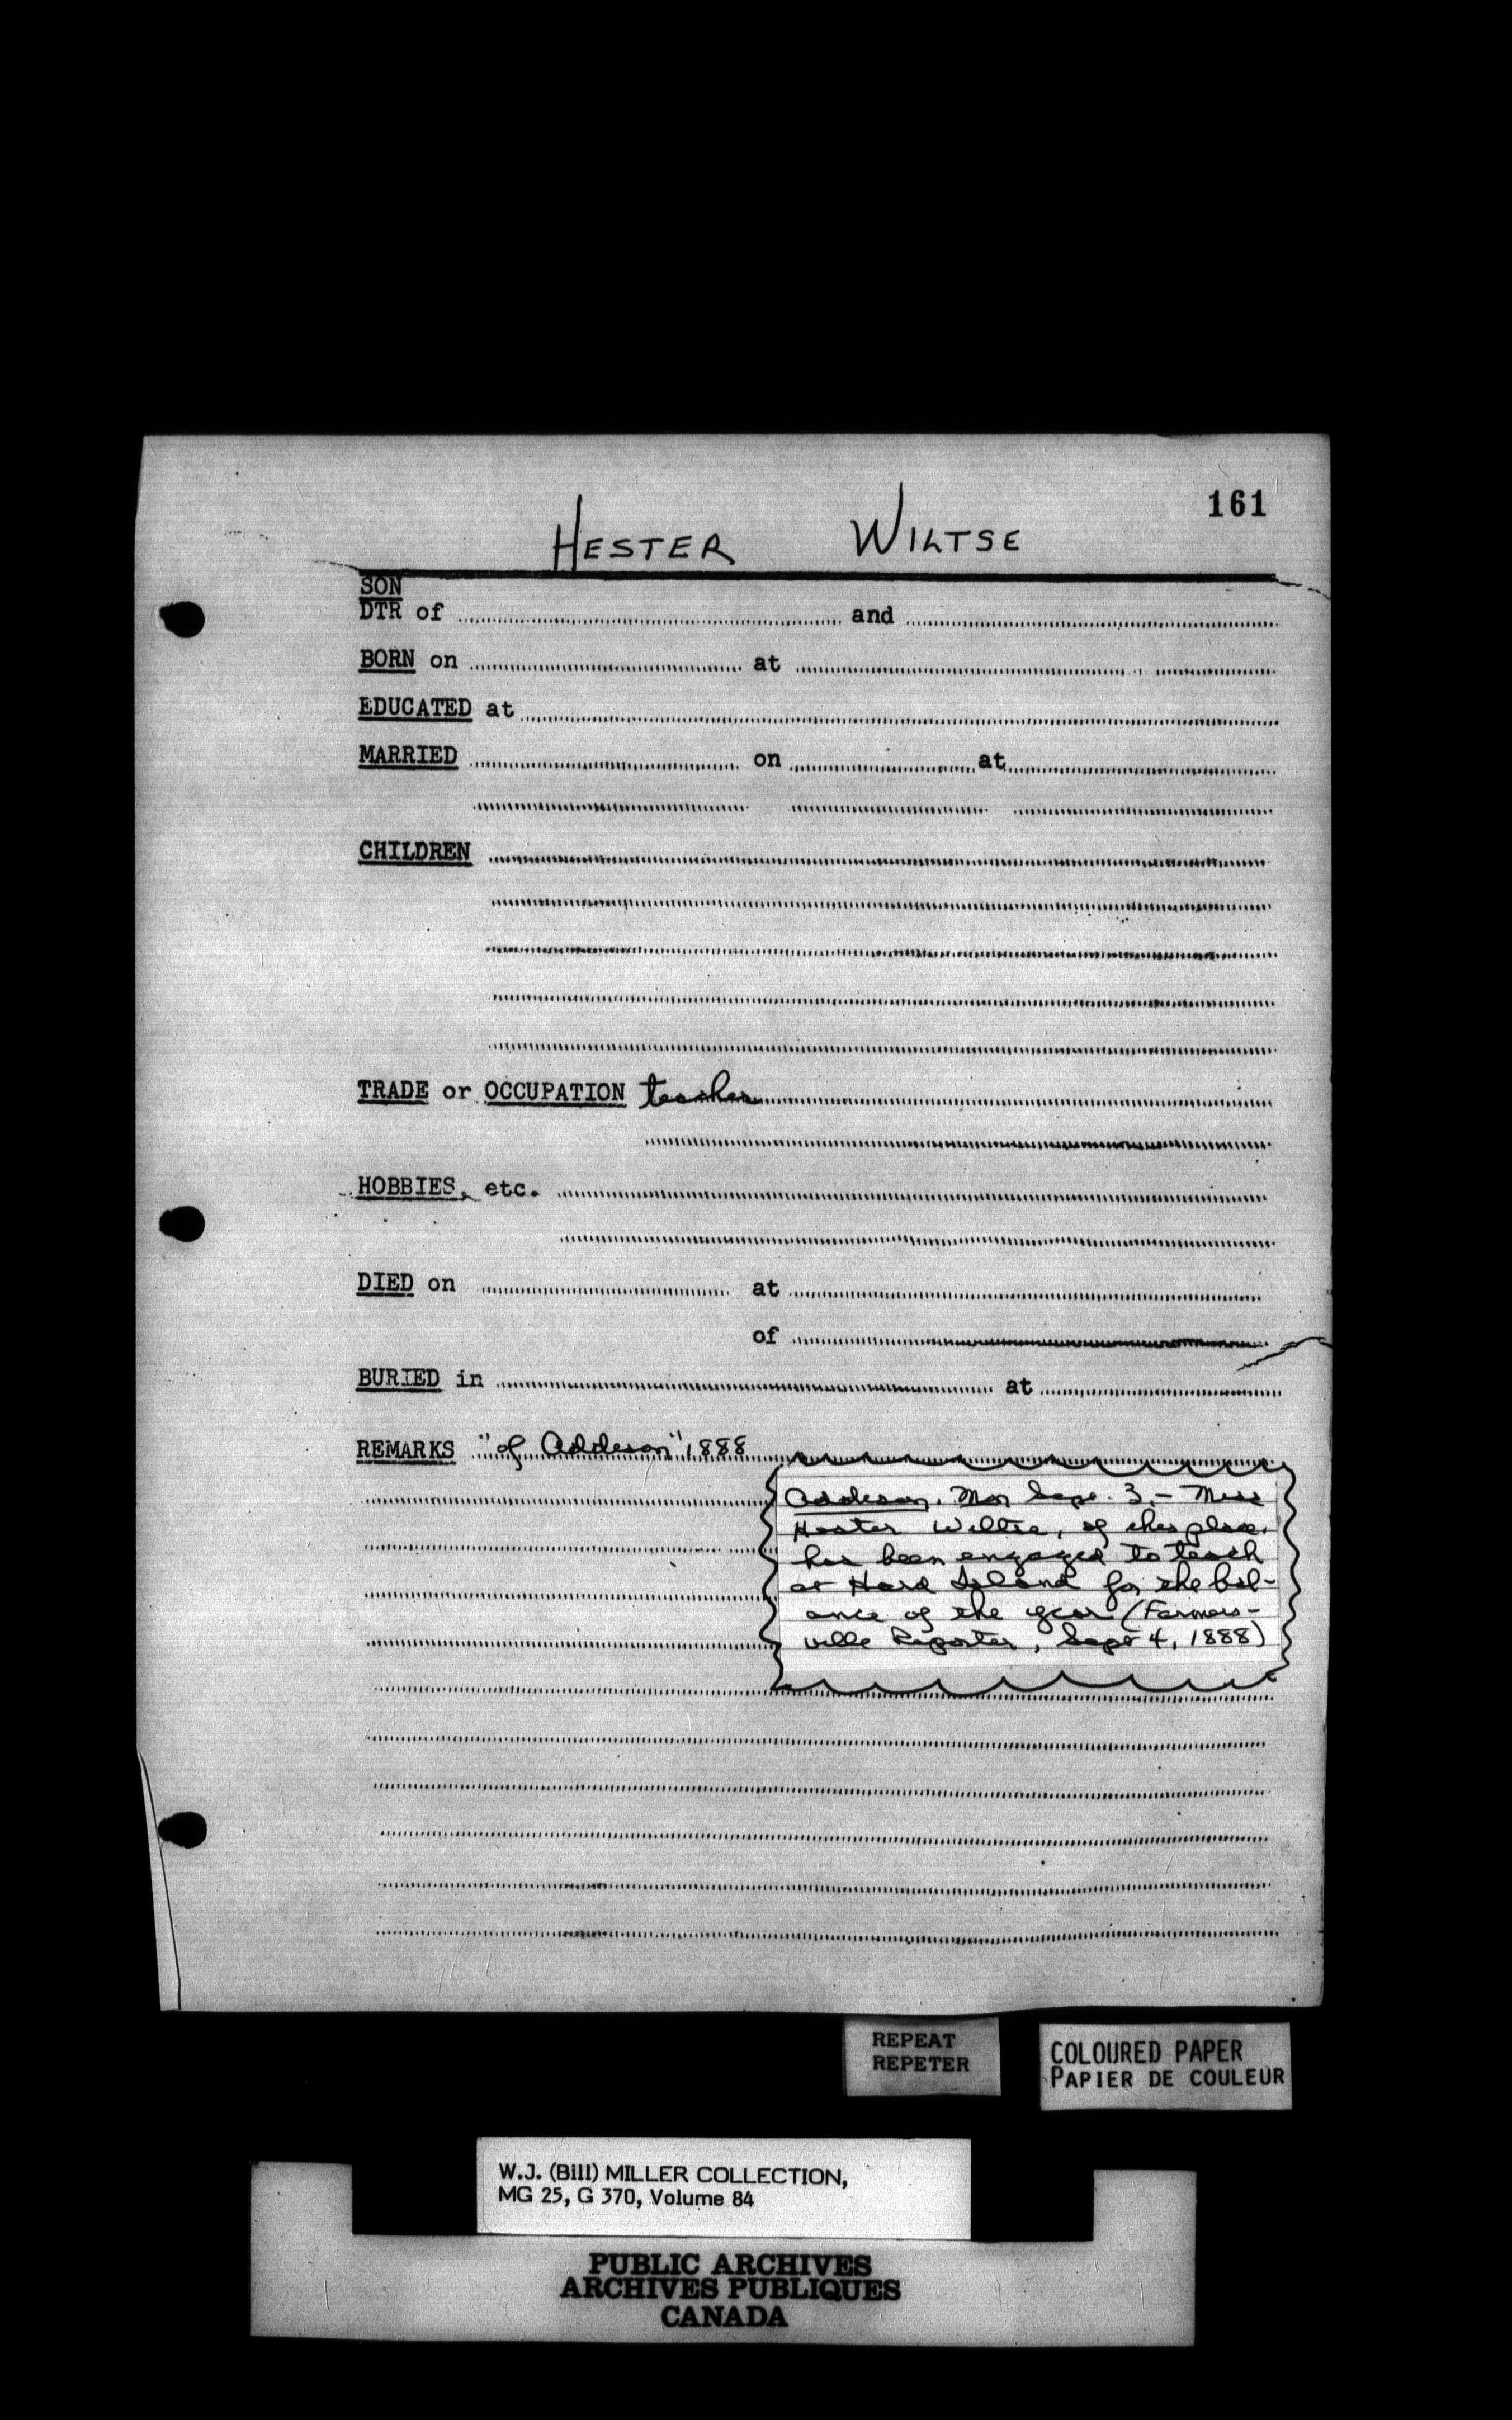 161
HESTER WILTSE
SON
DTR of and
BORN on at
EDUCATED at
MARRIED on at
CHILDREN
TRADE or OCCUPATION teacher
HOBBIES, etc.
DIED on at
of
BURIED in at
REMARKS "of Addison" 1888
Addison, Mon Sept. 3. - Miss
Hester Wiltse, of this place,
has been engaged to teach
at Hard Island for the bal-
ance of the year (Farmers-
ville Reporter, Sept 4, 1888)
REPEAT
REPETER
COLOURED PAPER
PAPIER DE COULEUR
W.J. (Bill) MILLER COLLECTION,
MG 25, G 370, Volume 84
PUBLIC ARCHIVES
ARCHIVES PUBLIQUES
CANADA